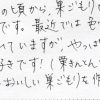 の頃から、巣ごもり
です。最近では色
べていますが、やっぱ
好きです！（栗きんとん
おいしい巣ごもりを作